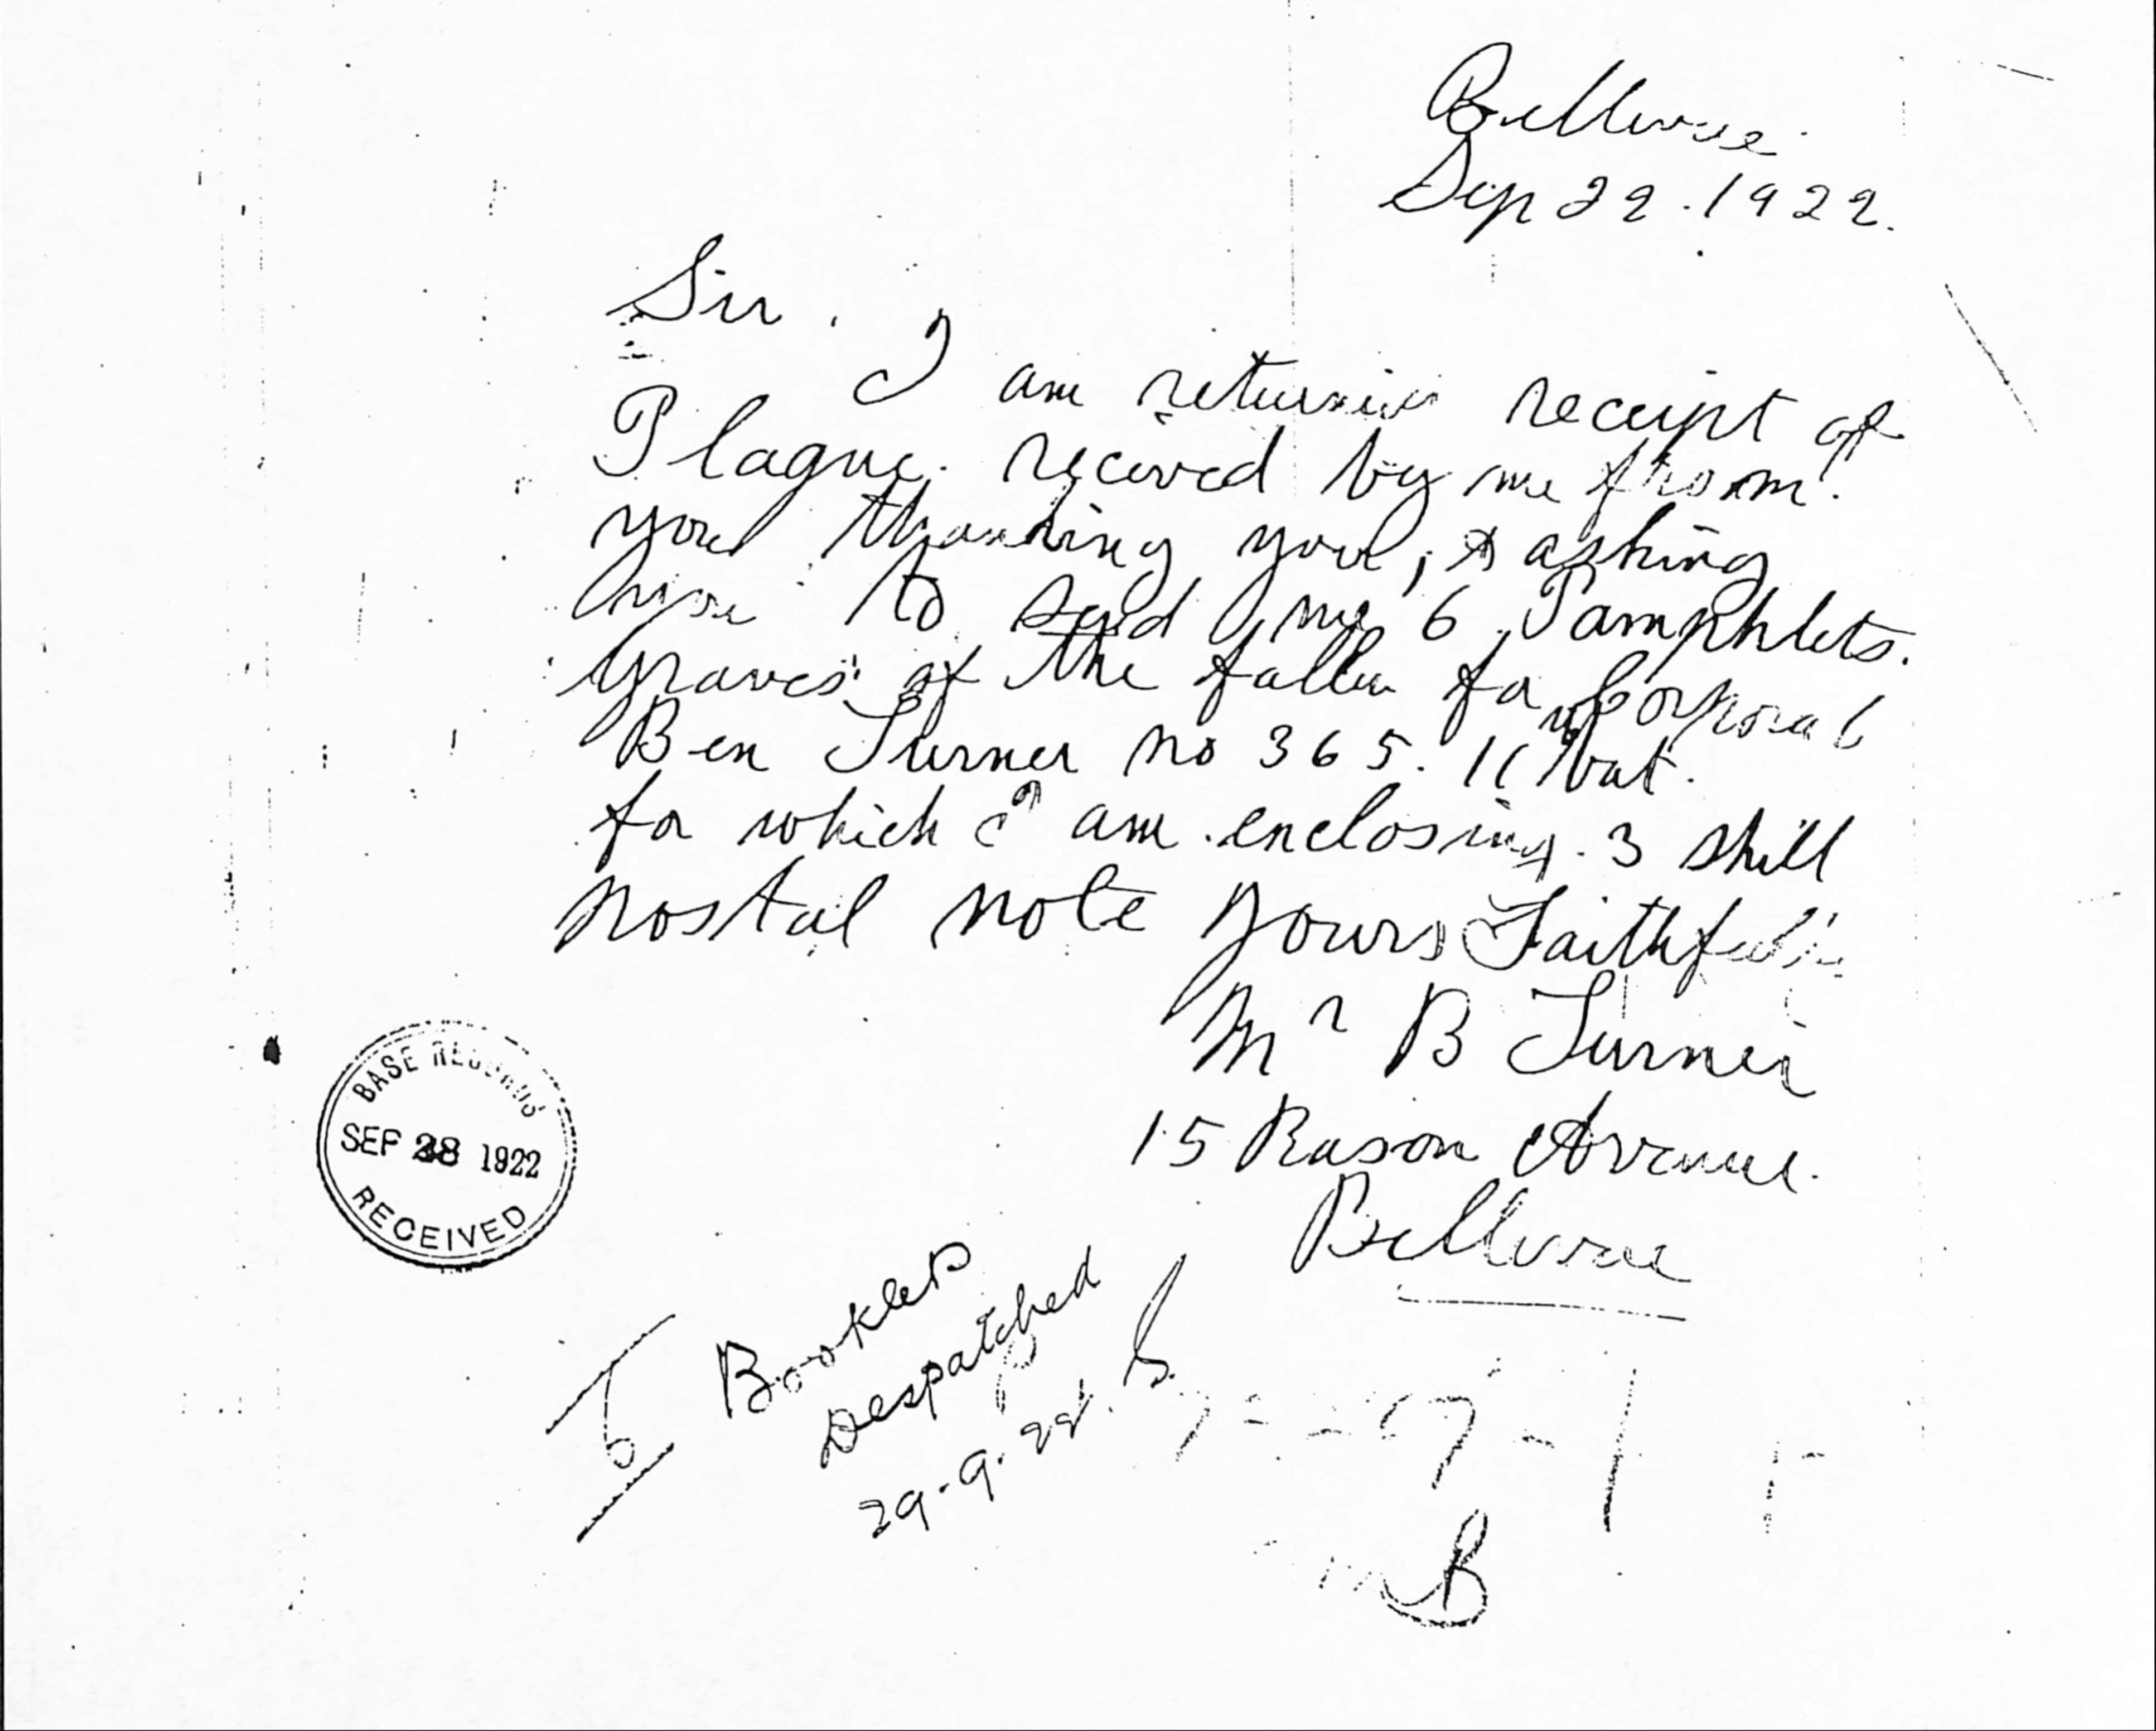 Bellevue.
Sep 22. 1922.
Sir.
I am returning receipt of
Plaque. recived by me from.
you thanking you, & asking
you to send me 6 Pamphlets.
Graves of the fallen for Corporal
Ben Turner no 365. 11 bat.
for which I am enclosing. 3 shill
postal note Yours Faithfully
Mr B Turner
15 Rason Avenue.
Bellevue
BASE RECORDS
SEP 28 1922
RECEIVED
6 Booklets
Despatched
29.9.22.